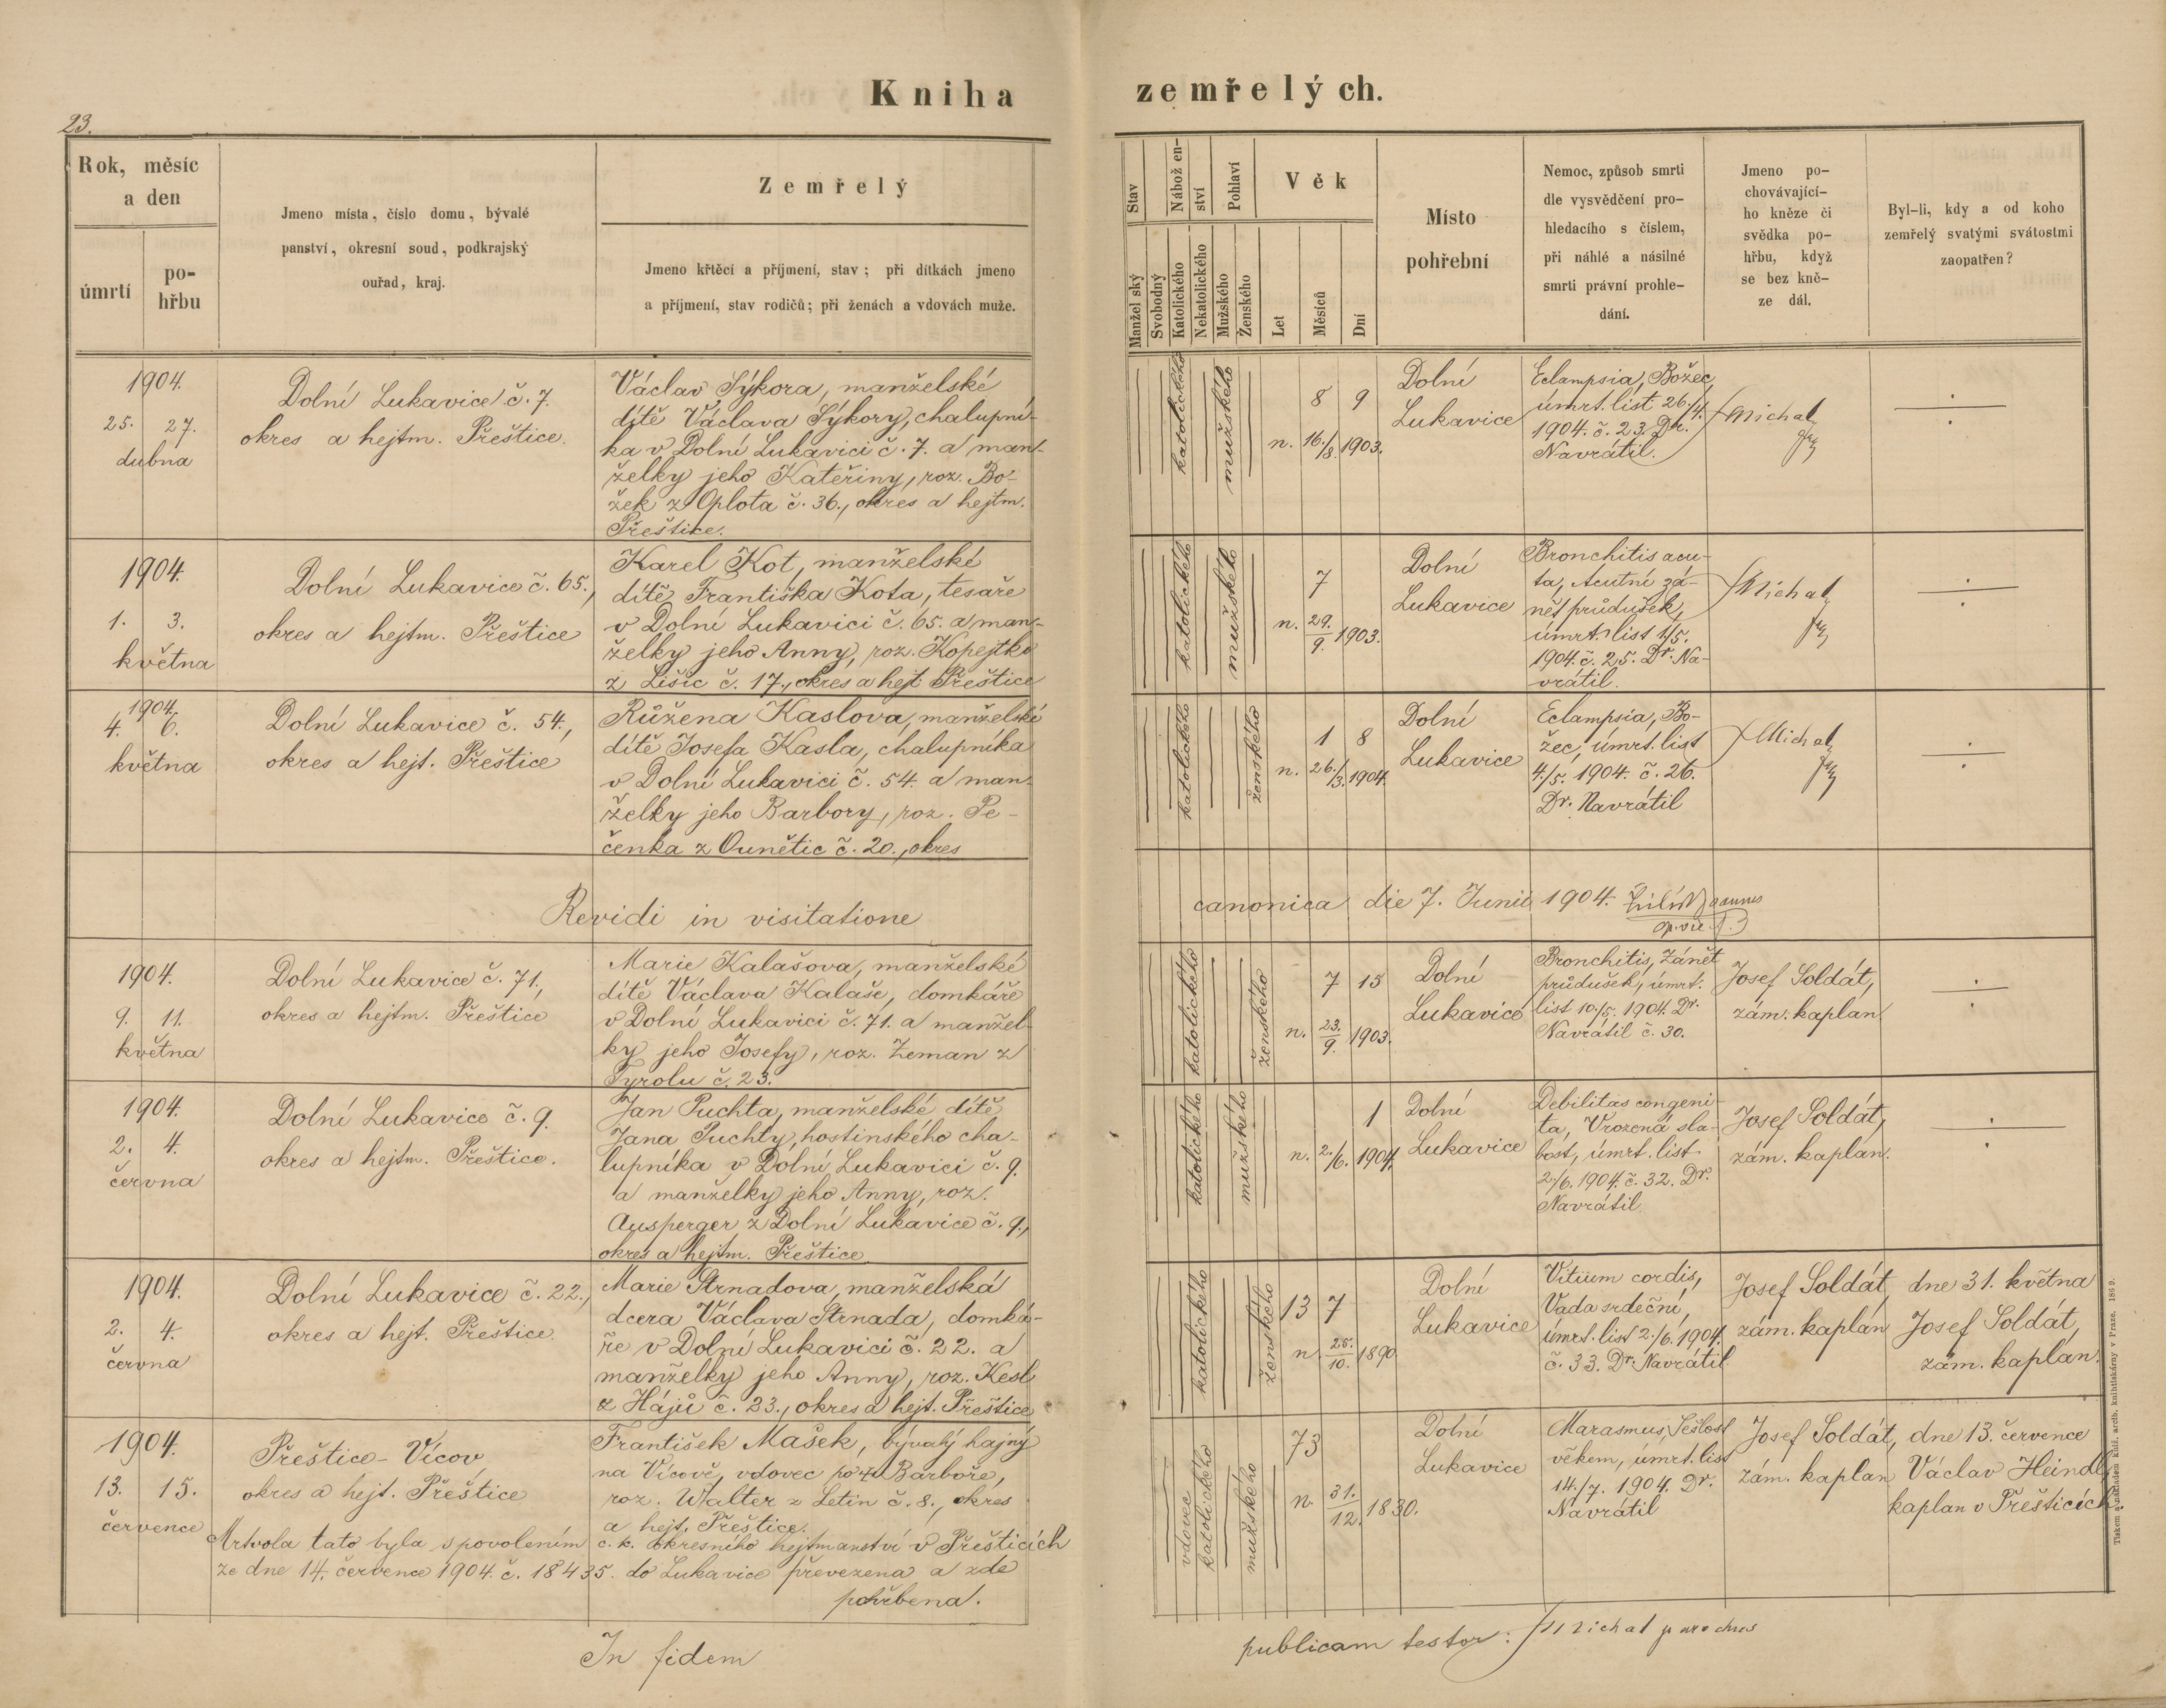 Kniha zemřelých.
23.
Rok, měsíc
a den
úmrtí
po-
hřbu
Jmeno místa, číslo domu, bývalé
panství, okresní soud, podkrajský
ouřad, kraj.
Zemřelý
Jmeno křtěcí a příjmení, stav; při dítkách jmeno
a příjmení, stav rodičů; při ženách a vdovách muže.
Stav
Manželský
Svobodný
Náboženství
Katolického
Nekatolického
Pohlaví
Mužského
Ženského
Věk
Let
Měsíců
Dní
Místo
pohřební
Nemoc, způsob smrti
dle vysvědčení pro-
hledacího s číslem,
při náhlé a násilné
smrti právní prohle-
dání.
Jmeno po-
chovávající-
ho kněze či
svědka po-
hřbu, když
se bez kně-
ze dál.
Byl-li, kdy a od koho
zemřelý svatými svátostmi
zaopatřen?
1904.
25. 27.
dubna
Dolní Lukavice č. 7.
okres a hejtm. Přeštice.
Václav Sýkora, manželské
dítě Václava Sýkory, chalupní-
ka v Dolní Lukavici č. 7. a man-
želky jeho Kateřiny, roz. Bo-
žek z Oplota č. 36., okres a hejtm.
Přeštice.
katolického
mužského
8 9
n. 16./8. 1903.
Dolní
Lukavice
Eclampsia, Božec
úmrt. list 26./4.
1904. č. 23. Dr.
Navrátil.
Michal
÷
1904.
1. 3.
května
Dolní Lukavice č. 65.,
okres a hejtm. Přeštice
Karel Kot, manželské
dítě Františka Kota, tesaře
v Dolní Lukavici č. 65. a man-
želky jeho Anny, roz. Kopejtko
z Lišic č. 17., okres a hejt Přeštice
katolického
mužského
7
n. 29./9. 1903.
Dolní
Lukavice
Bronchitis acu-
ta, Acutní zá-
nět průdušek,
úmrt. list 1/5.
1904. č. 25. Dr. Na-
vrátil.
Michal
÷
1904.
4. 6.
května
Dolní Lukavice č. 54.,
okres a hejt. Přeštice
Růžena Kaslova, manželské
dítě Josefa Kasla, chalupníka
v Dolní Lukavici č. 54. a man-
želky jeho Barbory, roz. Pe-
čenka z Ounětic č. 20., okres
katolického
ženského
1 8
n. 26./3. 1904.
Dolní
Lukavice
Eclampsia, Bo-
žec, úmrt. list
4./5. 1904. č. 26.
Dr. Navrátil
Michal
÷
Revidi in visitatione canonica die 7. Junii 1904.
1904.
9. 11.
května
Dolní Lukavice č. 71.,
okres a hejtm. Přeštice
Marie Kalašova, manželské
dítě Václava Kalaše, domkáře
v Dolní Lukavici č. 71. a manžel-
ky jeho Josefy, roz. Zeman z
Tyrolu č. 23.
katolického
ženského
7 15
n. 23./9. 1903.
Dolní
Lukavice
Bronchitis, Zánět
průdušek, úmrt.
list 10./5. 1904. Dr.
Navrátil č. 30.
Josef Soldát,
zám. kaplan
÷
1904.
2. 4.
června
Dolní Lukavice č. 9.
okres a hejtm. Přeštice.
Jan Puchta, manželské dítě
Jana Puchty, hostinského cha-
lupníka v Dolní Lukavici č. 9.
a manželky jeho Anny, roz.
Ausperger z Dolní Lukavice č. 9.,
okres a hejtm. Přeštice
katolického
mužského
1
n. 2./6. 1904.
Dolní
Lukavice
Debilitas congeni-
ta, Vrozená sla-
bost, úmrt. list
2/6. 1904. č. 32. Dr.
Navrátil
Josef Soldát,
zám. kaplan.
÷
1904.
2. 4.
června
Dolní Lukavice č. 22.,
okres a hejt. Přeštice.
Marie Strnadova, manželská
dcera Václava Strnada, domká-
ře v Dolní Lukavici č. 22. a
manželky jeho Anny, roz. Kesl
z Hájů č. 23., okres a hejt. Přeštice
katolického
ženského
13 7
n. 25./10. 1890
Dolní
Lukavice
Vitium cordis,
Vada srdeční,
úmrt. list 2./6. 1904.
č. 33. Dr. Navrátil
Josef Soldát,
zám. kaplan
dne 31. května
Josef Soldát,
zám. kaplan.
1904.
13. 15.
července
Přeštice - Vícov,
okres a hejt. Přeštice
František Mašek, bývalý hajný
na Vícově, vdovec po Barboře,
roz. Walter z Letin č. 8., okres
a hejt. Přeštice.
Mrtvola tato byla s povolením c. k. okresního hejtmanství v Přešticích
ze dne 14. července 1904. č. 18435. do Lukavice převezena a zde
pohřbena.
vdovec
katolického
mužského
73
n. 31./12. 1830.
Dolní
Lukavice
Marasmus, Sešlost
věkem, úmrt. list
14./7. 1904. Dr.
Navrátil
Josef Soldát,
zám. kaplan
dne 13. července
Václav Heindl,
kaplan v Přešticích.
In fidem publicam testor: Michal parochus
Tiskem a nákladem kníž. arcib. knihtiskárny v Praze. 1862.